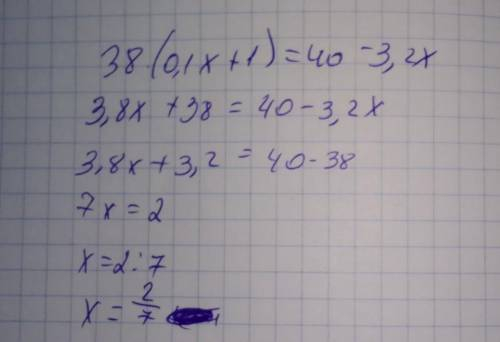 38(0,1x+1)=40-3,2x
3,8x+38=40-3,2x
3,8x+3,2=40-38
7x=2
x=2:7
x=2/7